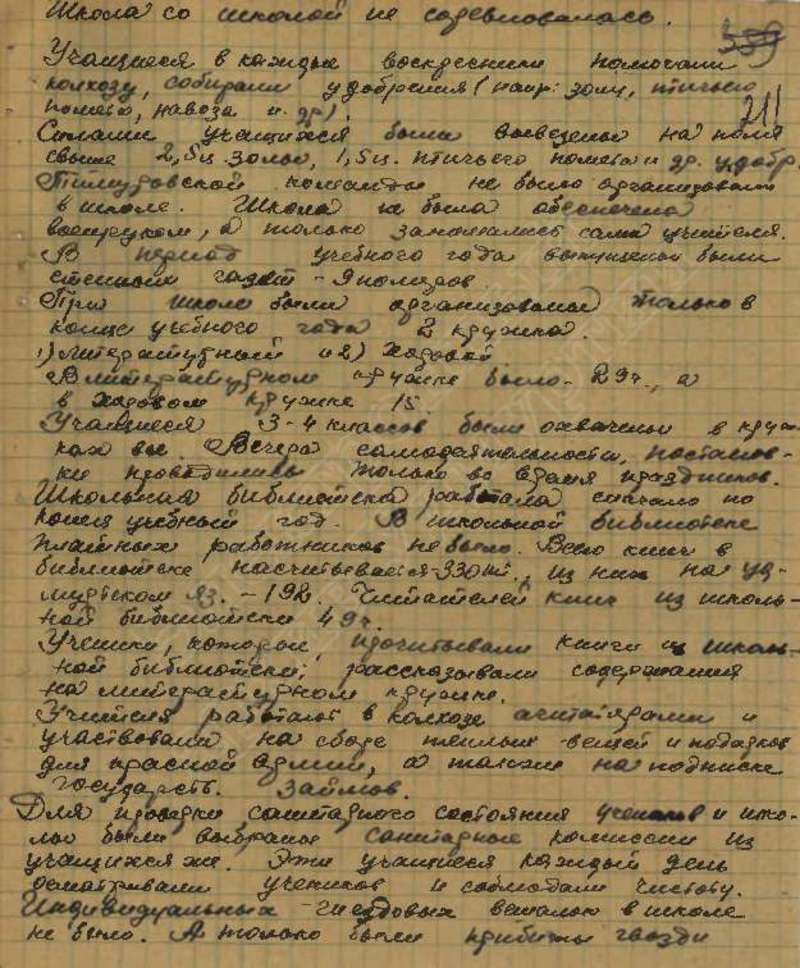 Школа со школой не соревновалась.
359
Учащиеся в каждые воскресники помогали
колхозу, собирали удобрения (напр: золу, птичьего
помета, навоза и др).
211
Силами учащихся были вывезены на поля
свыше 2,5ц. золы, 1,5ц. птичьего помета и др. удобр.
Тимуровской команды не было организовано
в школе. Школа не была обеспечена
военруком, а только занимались сами учителя.
В период учебного года выпущены были
стенных газет - 9 номеров.
При школе были организованы только в
конце учебного года 2 кружка.
1) литературный и 2) Хоровой
В литературном кружке было - 29ч., а
в хоровом кружке 15.
Учащиеся 3-4 классов были охвачены в круж-
ках все. Вечера самодеятельности, постанов-
ки проводились только во время праздников.
Школьная библиотека работала сначало по
конец учебный год. В школьной библиотеке
платных работников не было. Всего книг в
библиотеке насчитывается - 330 шт., из них на уд-
муртском яз. - 192. Читателей книг из школь-
ной библиотеки 49ч.
Ученики, которые прочитывали книги из школь-
ной библиотеки, рассказывали содержания
на литературном кружке.
Учителя работали в колхозе агитаторами и
участвовали на сборе теплых вещей и подарков
для красной армии, а также на подписке
государств. займов.
Для проверки санитарного состояния учеников и шко-
лы были выбраны санитарные комиссии из
учащихся же. Эти учащиеся каждый день
осматривали учеников и соблюдали чистоту.
Индивидуальных - гнездовых вешалок в школе
не было. А только были прибиты гвозди